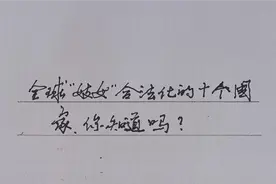 全球“妓女”合法化的十个国
家、你知道吗？